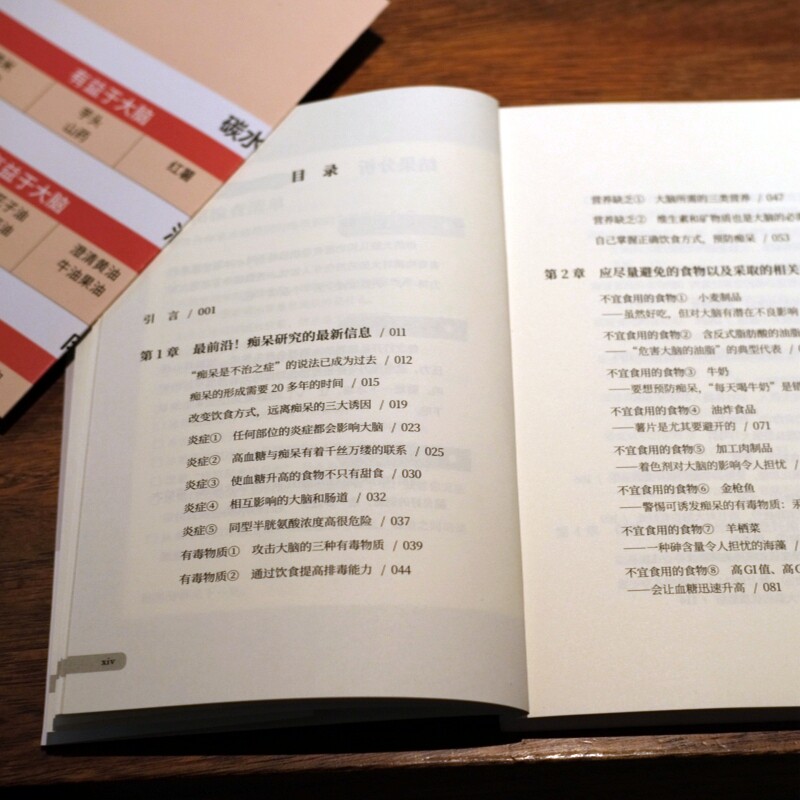 有益于大脑
芋头
山药
红薯
碳水
有益于大脑
澄清黄油
牛油果油
目 录
引 言 / 001
第1章 最前沿！痴呆研究的最新信息 / 011
“痴呆是不治之症”的说法已成为过去 / 012
痴呆的形成需要 20 多年的时间 / 015
改变饮食方式，远离痴呆的三大诱因 / 019
炎症① 任何部位的炎症都会影响大脑 / 023
炎症② 高血糖与痴呆有着千丝万缕的联系 / 025
炎症③ 使血糖升高的食物不只有甜食 / 030
炎症④ 相互影响的大脑和肠道 / 032
炎症⑤ 同型半胱氨酸浓度高很危险 / 037
有毒物质① 攻击大脑的三种有毒物质 / 039
有毒物质② 通过饮食提高排毒能力 / 044
xiv
营养缺乏① 大脑所需的三类营养 / 047
营养缺乏② 维生素和矿物质也是大脑的必
自己掌握正确饮食方式，预防痴呆 / 053
第2章 应尽量避免的食物以及采取的相关
不宜食用的食物① 小麦制品
——虽然好吃，但对大脑有潜在不良影响
不宜食用的食物② 含反式脂肪酸的油脂
——“危害大脑的油脂”的典型代表 /
不宜食用的食物③ 牛奶
——要想预防痴呆，“每天喝牛奶”是错
不宜食用的食物④ 油炸食品
——薯片是尤其要避开的 / 071
不宜食用的食物⑤ 加工肉制品
——着色剂对大脑的影响令人担忧 /
不宜食用的食物⑥ 金枪鱼
——警惕可诱发痴呆的有毒物质：汞
不宜食用的食物⑦ 羊栖菜
——一种砷含量令人担忧的海藻 /
不宜食用的食物⑧ 高GI值、高G
——会让血糖迅速升高 / 081